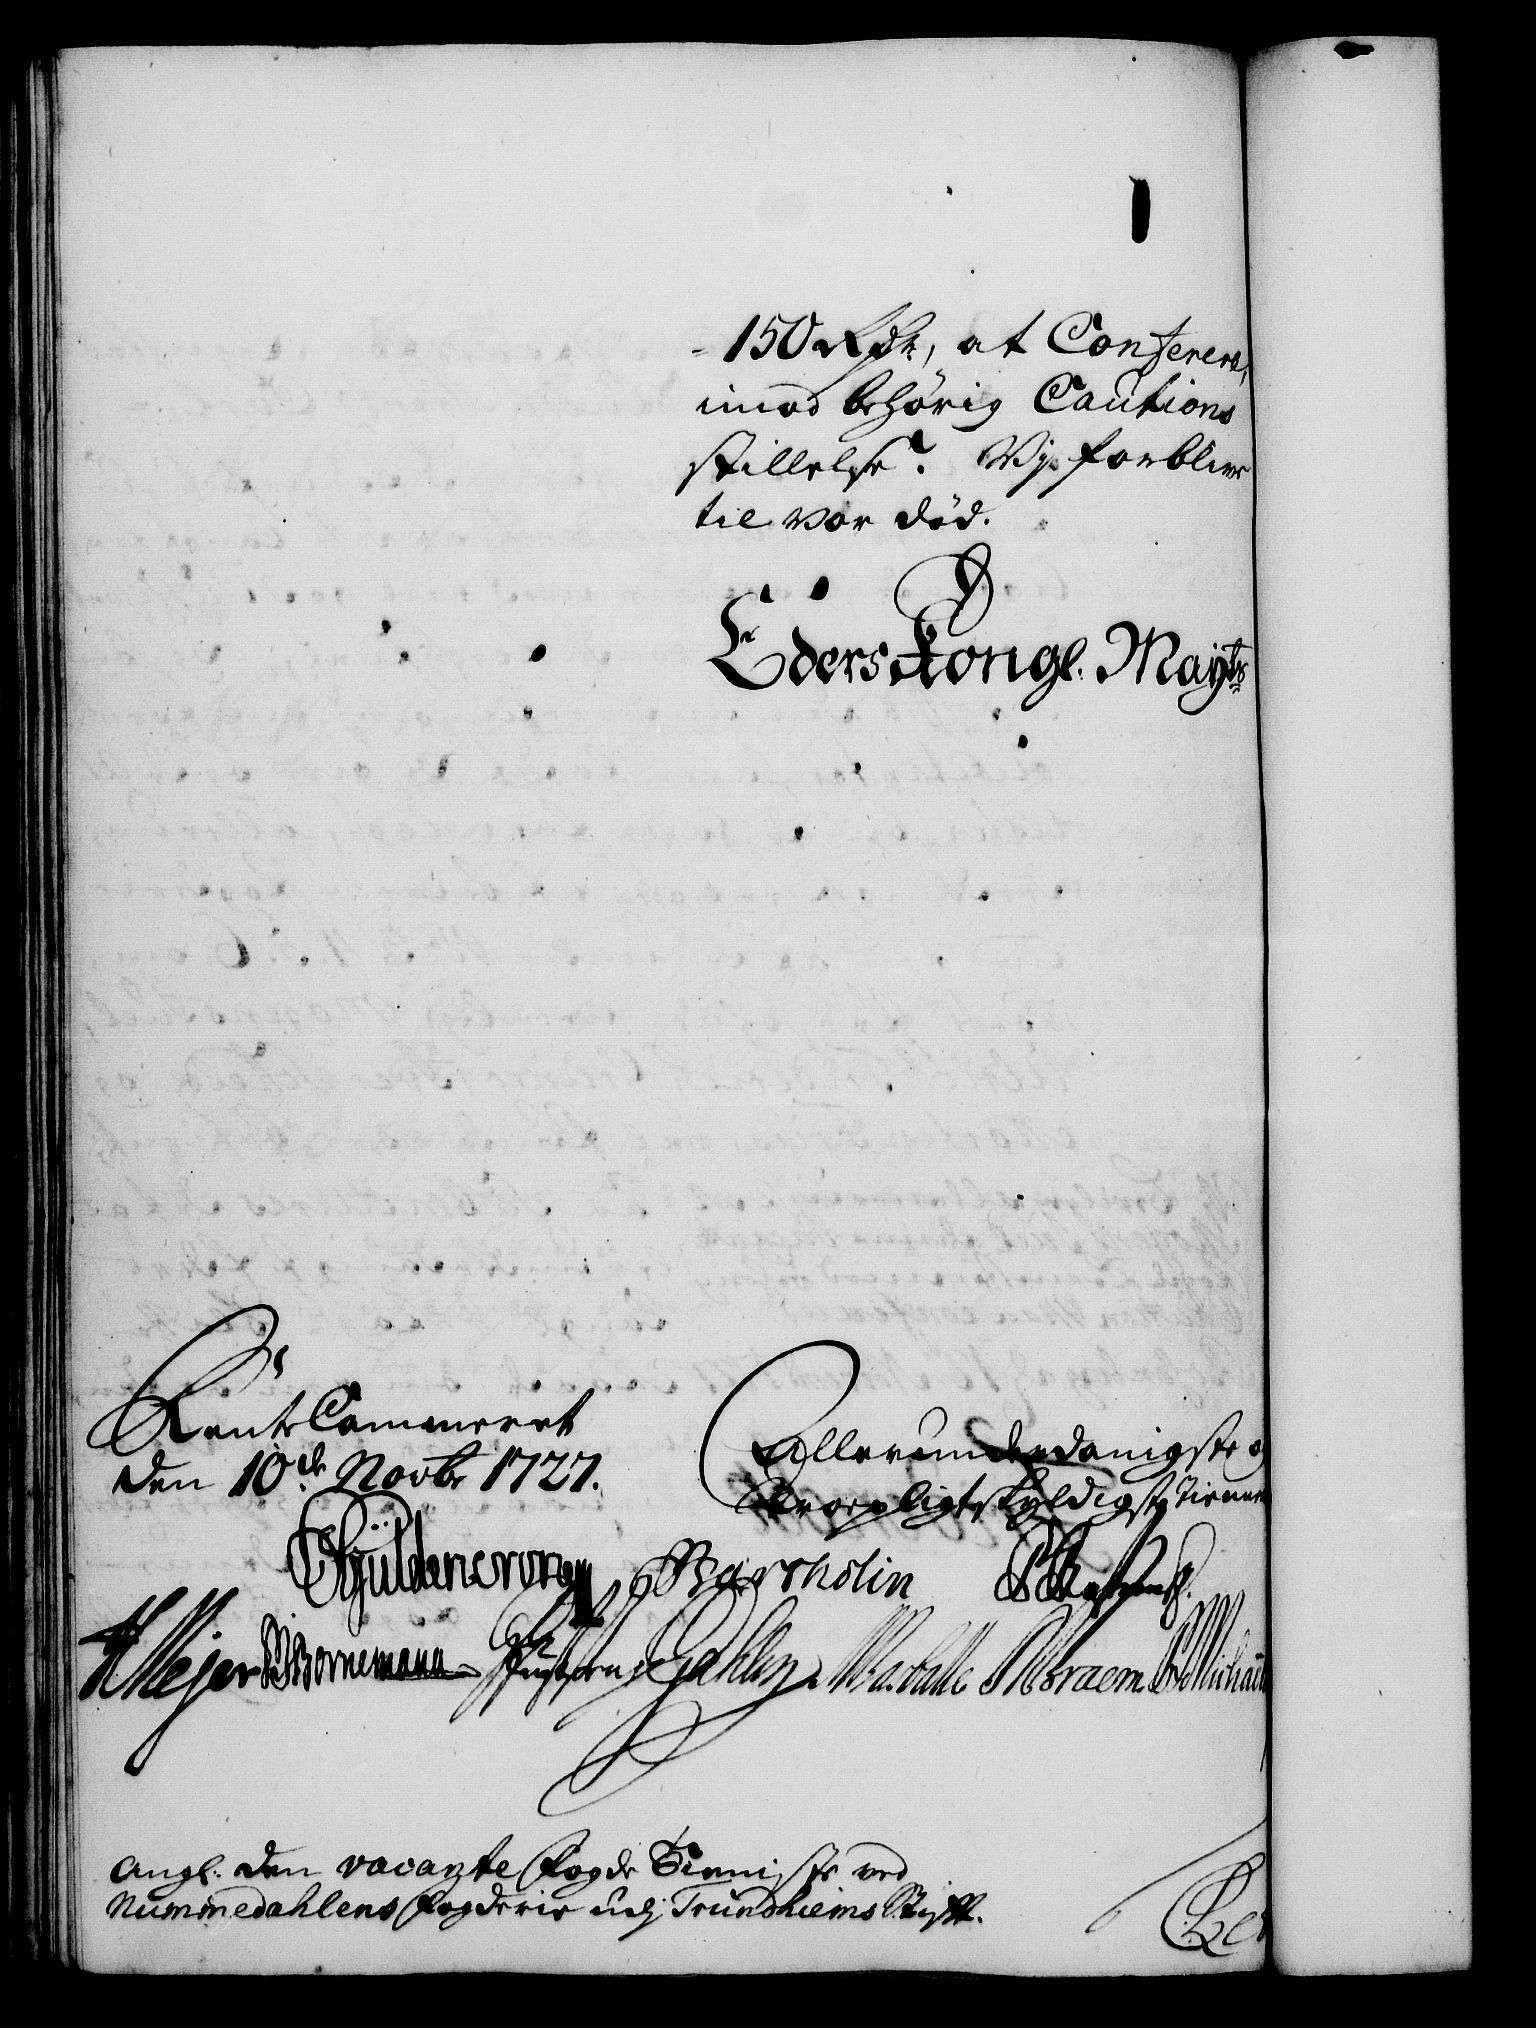 150 Rdr, at Conferere,
imod behörig Cautions
stillelse? Vi forblive
til vor död.
Eders Kongl. Mayts
Rente Cammeret
den 10de Novbr 1727.
Allerunderdanigste
Troepligtskyldigste Tienere
Gÿldencrone
Bartholin
H Mejer BBornemann
den vacante Fogde Tieniste ved
Nummedahlens Fogderie udj Trundhiems Stift.